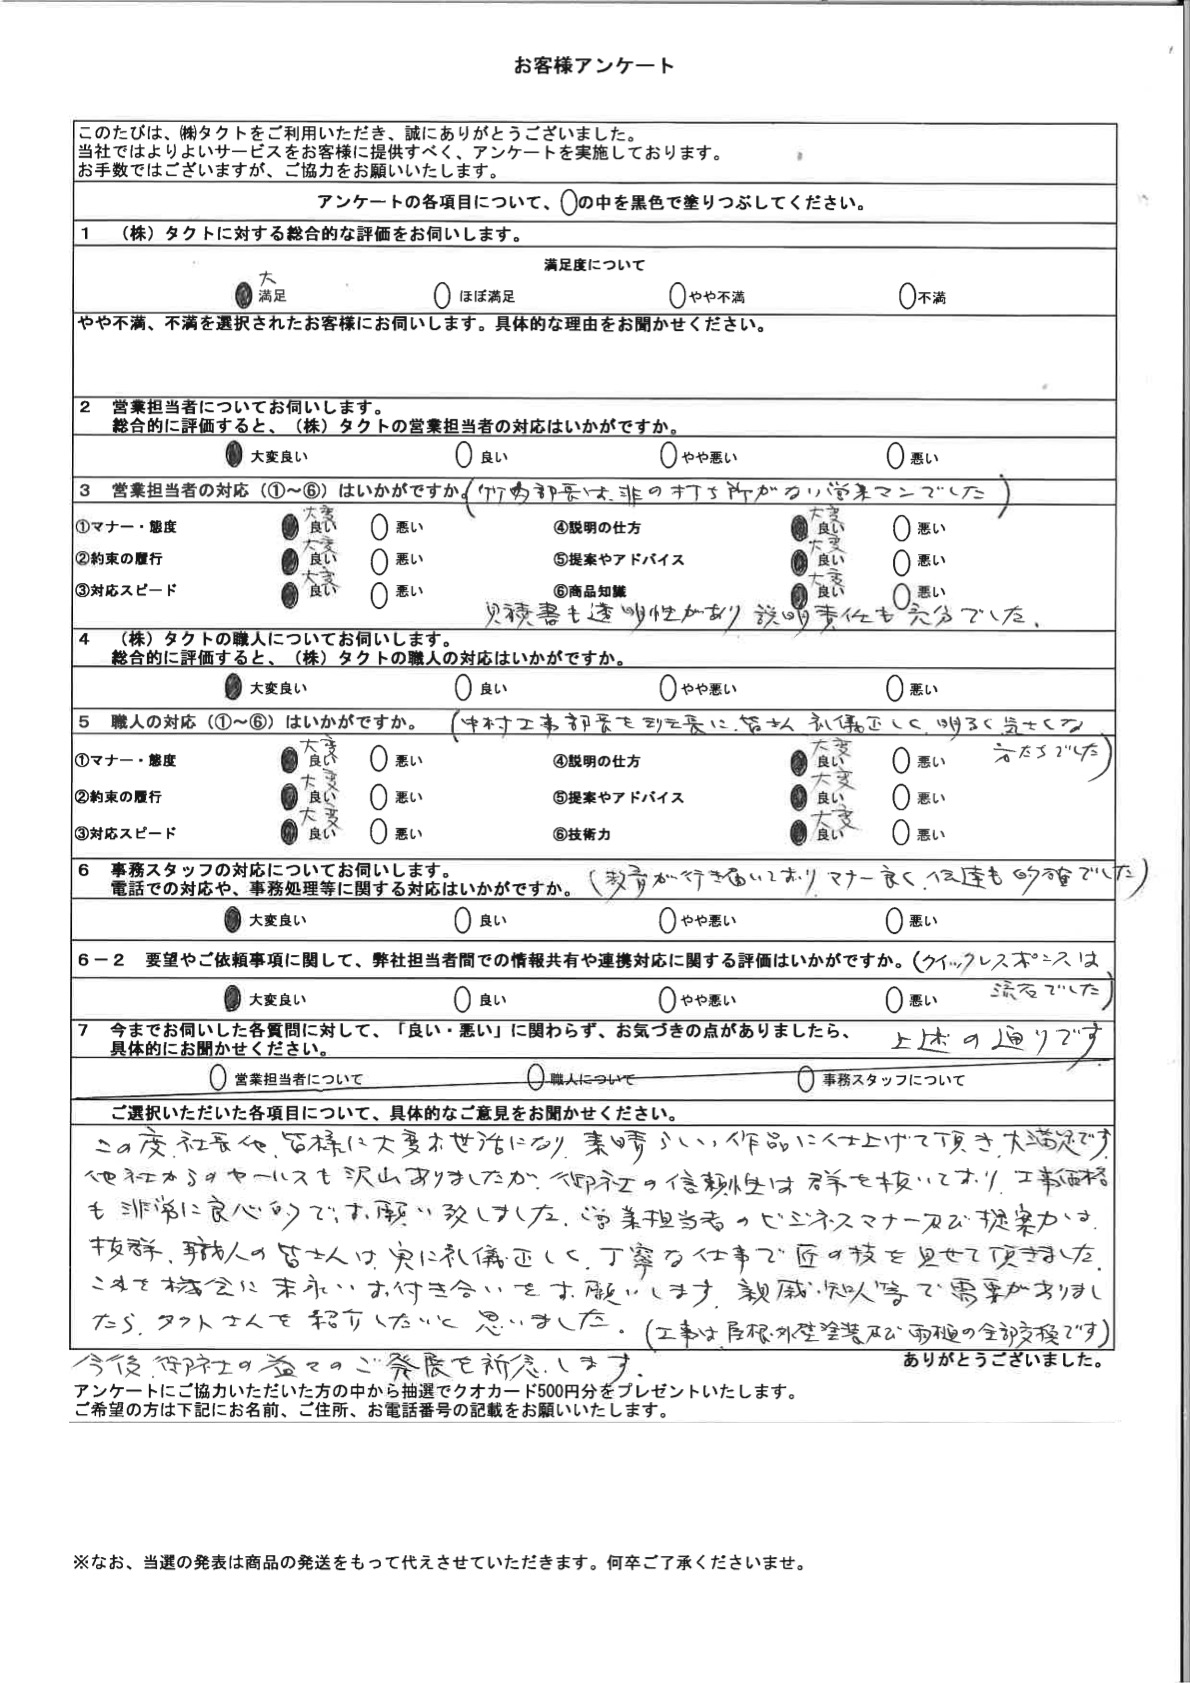 お客様アンケート
このたびは、㈱タクトをご利用いただき、誠にありがとうございました。
当社ではよりよいサービスをお客様に提供すべく、アンケートを実施しております。
お手数ではございますが、ご協力をお願いいたします。
アンケートの各項目について、○の中を黒色で塗りつぶしてください。
1 （株）タクトに対する総合的な評価をお伺いします。
満足度について
大
満足 ほぼ満足 やや不満 不満
やや不満、不満を選択されたお客様にお伺いします。具体的な理由をお聞かせください。
2 営業担当者についてお伺いします。
総合的に評価すると、（株）タクトの営業担当者の対応はいかがですか。
大変良い 良い やや悪い 悪い
3 営業担当者の対応（①～⑥）はいかがですか。(竹内部長は、非の打ち所がない営業マンでした)
大変 大変
①マナー・態度 良い 悪い ④説明の仕方 良い 悪い
大変 大変
②約束の履行 良い 悪い ⑤提案やアドバイス 良い 悪い
大変 大変
③対応スピード 良い 悪い ⑥商品知識 良い 悪い
見積書も透明性があり 説明責任も充分でした。
4 （株）タクトの職人についてお伺いします。
総合的に評価すると、（株）タクトの職人の対応はいかがですか。
大変良い 良い やや悪い 悪い
5 職人の対応（①～⑥）はいかがですか。 (中村工事部長を班長に、皆さん 礼儀正しく、明るく気さくな
方たちでした)
大変 大変
①マナー・態度 良い 悪い ④説明の仕方 良い 悪い
大変 大変
②約束の履行 良い 悪い ⑤提案やアドバイス 良い 悪い
大変 大変
③対応スピード 良い 悪い ⑥技術力 良い 悪い
6 事務スタッフの対応についてお伺いします。
電話での対応や、事務処理等に関する対応はいかがですか。 (教育が行き届いており マナー良く、伝達も的確でした)
大変良い 良い やや悪い 悪い
6－2 要望やご依頼事項に関して、弊社担当者間での情報共有や連携対応に関する評価はいかがですか。(クイックレスポンスは、
流石でした)
大変良い 良い やや悪い 悪い
7 今までお伺いした各質問に対して、「良い・悪い」に関わらず、お気づきの点がありましたら、
具体的にお聞かせください。 上述の通りです
営業担当者について 職人について 事務スタッフについて
ご選択いただいた各項目について、具体的なご意見をお聞かせください。
この度、社長他、皆様に大変お世話になり、素晴らしい作品に仕上げて頂き、大満足です。
他社からのセールスも沢山ありましたが、御社の信頼性は群を抜いており、工事価格
も非常に良心的で、お願い致しました。営業担当者のビジネスマナー及び提案力は、
抜群、職人の皆さんは、実に礼儀正しく、丁寧な仕事で匠の技を見せて頂きました。
これを機会に末永いお付き合いをお願いします。親戚・知人等で需要がありまし
たら、タクトさんを紹介したいと思いました。(工事は、屋根・外壁塗装及び雨樋の全部交換です)
今後、御社の益々のご発展を祈念します。
ありがとうございました。
アンケートにご協力いただいた方の中から抽選でクオカード500円分をプレゼントいたします。
ご希望の方は下記にお名前、ご住所、お電話番号の記載をお願いいたします。
※なお、当選の発表は商品の発送をもって代えさせていただきます。何卒ご了承くださいませ。